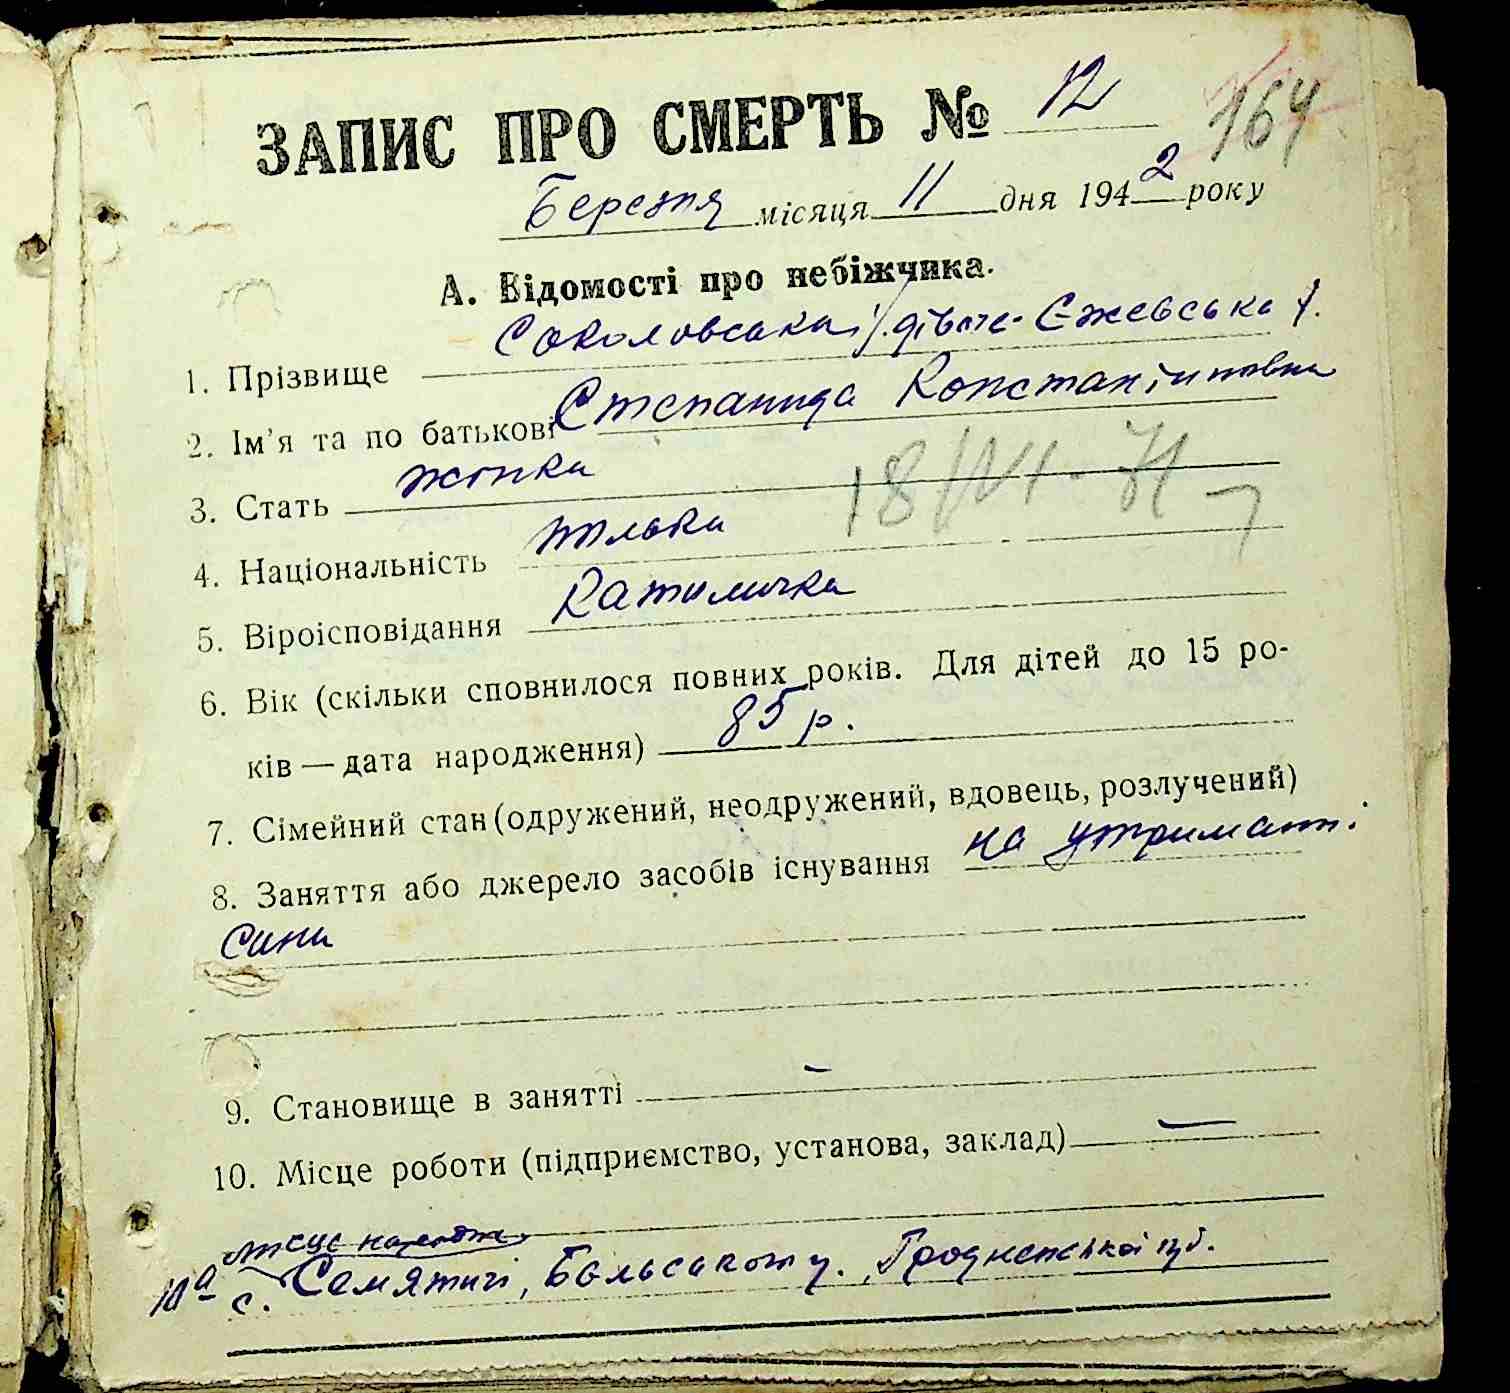 ЗАПИС ПРО СМЕРТЬ № 12
164
Березня місяця 11 дня 1942 року
А. Відомості про небіжчика.
1. Прізвище Соколовська /дівоче- Єжевська/.
2. Ім'я та по батькові Степанида Константиновна
3. Стать жінка
18/VI-71
4. Національність полька
5. Віроісповідання католичка
6. Вік (скільки сповнилося повних років. Для дітей до 15 ро-
ків — дата народження) 85 р.
7. Сімейний стан (одружений, неодружений, вдовець, розлучений)
8. Заняття або джерело засобів існування на утриманні
сина
9. Становище в занятті —
10. Місце роботи (підприємство, установа, заклад) —
місце народж.
10а с. Семятичі, Бельського у., Гродненської губ.